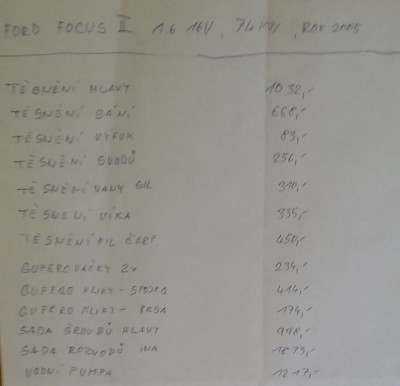 FORD FOCUS II 1.6 16V, 74 kW, ROK 2005
TĚSNĚNÍ HLAVY 1032,-
TĚSNĚNÍ SÁNÍ 668,-
TĚSNĚNÍ VÝFUK 83,-
TĚSNĚNÍ SVODŮ 256,-
TĚSNĚNÍ VANY OIL 310,-
TĚSNENÍ VÍKA 335,-
TĚSNĚNÍ OIL ČERP 450,-
GUFERO VAČKY 2x 234,-
GUFERO KLIKY - 414,-
GUFERO KLIKY - 174,-
SADA ŠROUBŮ HLAVY 918,-
SADA ROZVODŮ INA 1873,-
VODNÍ PUMPA 1217,-